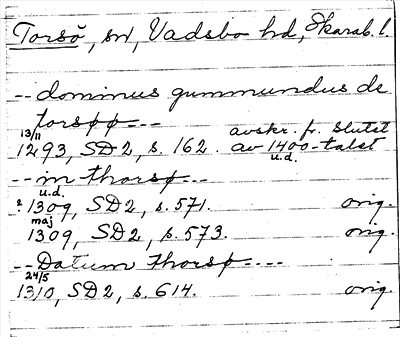 Torsö, sn, Vadsbo hd, Skarab. l.
-- dominus gummundus de
torsøø ---
13/11 avskr. fr. slutet
1293, SD2, s. 162. av 1400-talet
u.d.
-- in thorsø ---
u.d.
? 1309, SD2, s. 571. orig.
maj
1309, SD2, s. 573. orig.
-- Datum thorsø ---
24/5
1310, SD2, s. 614. orig.